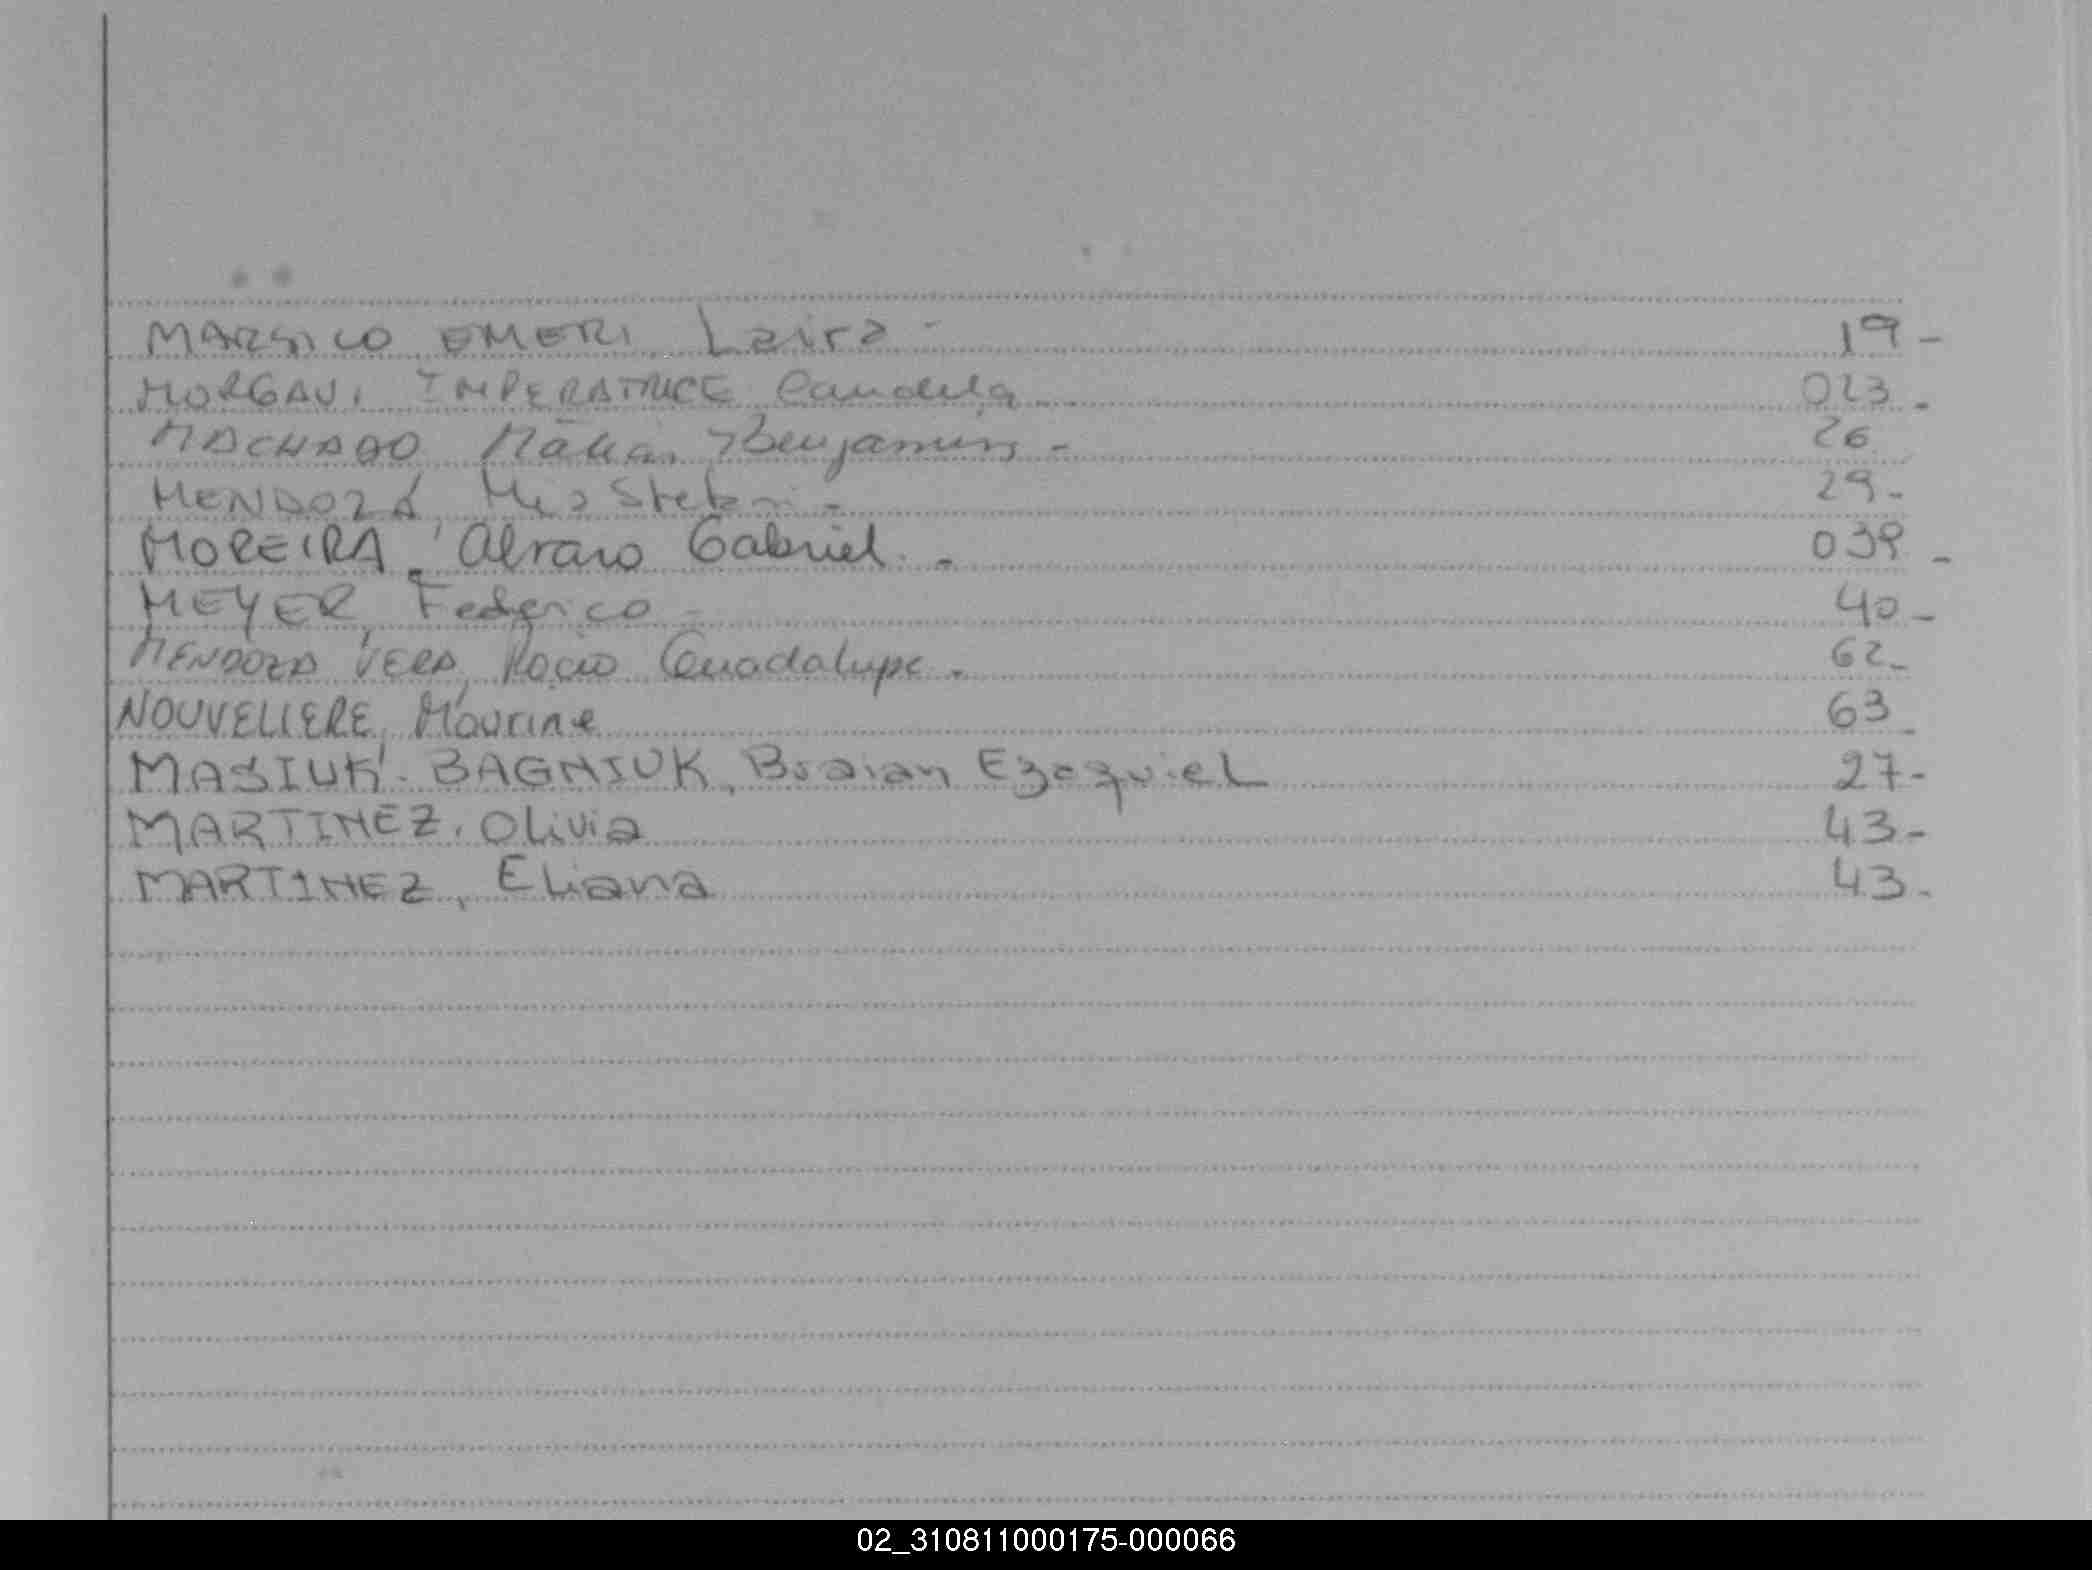 MARSICO EMERI Laira - 19-
MORGAVI IMPERATRICE Candela 023-
MACHADO Benjamin - 26
MENDOZA, Mia - 29-
MOREIRA, Alvaro Gabriel. - 039-
MEYER, Federico - 40-
MENDOZA VERA, Rocio Guadalupe - 62-
NOUVELIERE, Mourine 63-
MASIUK - BAGNIUK, Braian Ezequiel 27-
MARTINEZ, Olivia 43-
MARTINEZ, Eliana 43-
02_310811000175-000066